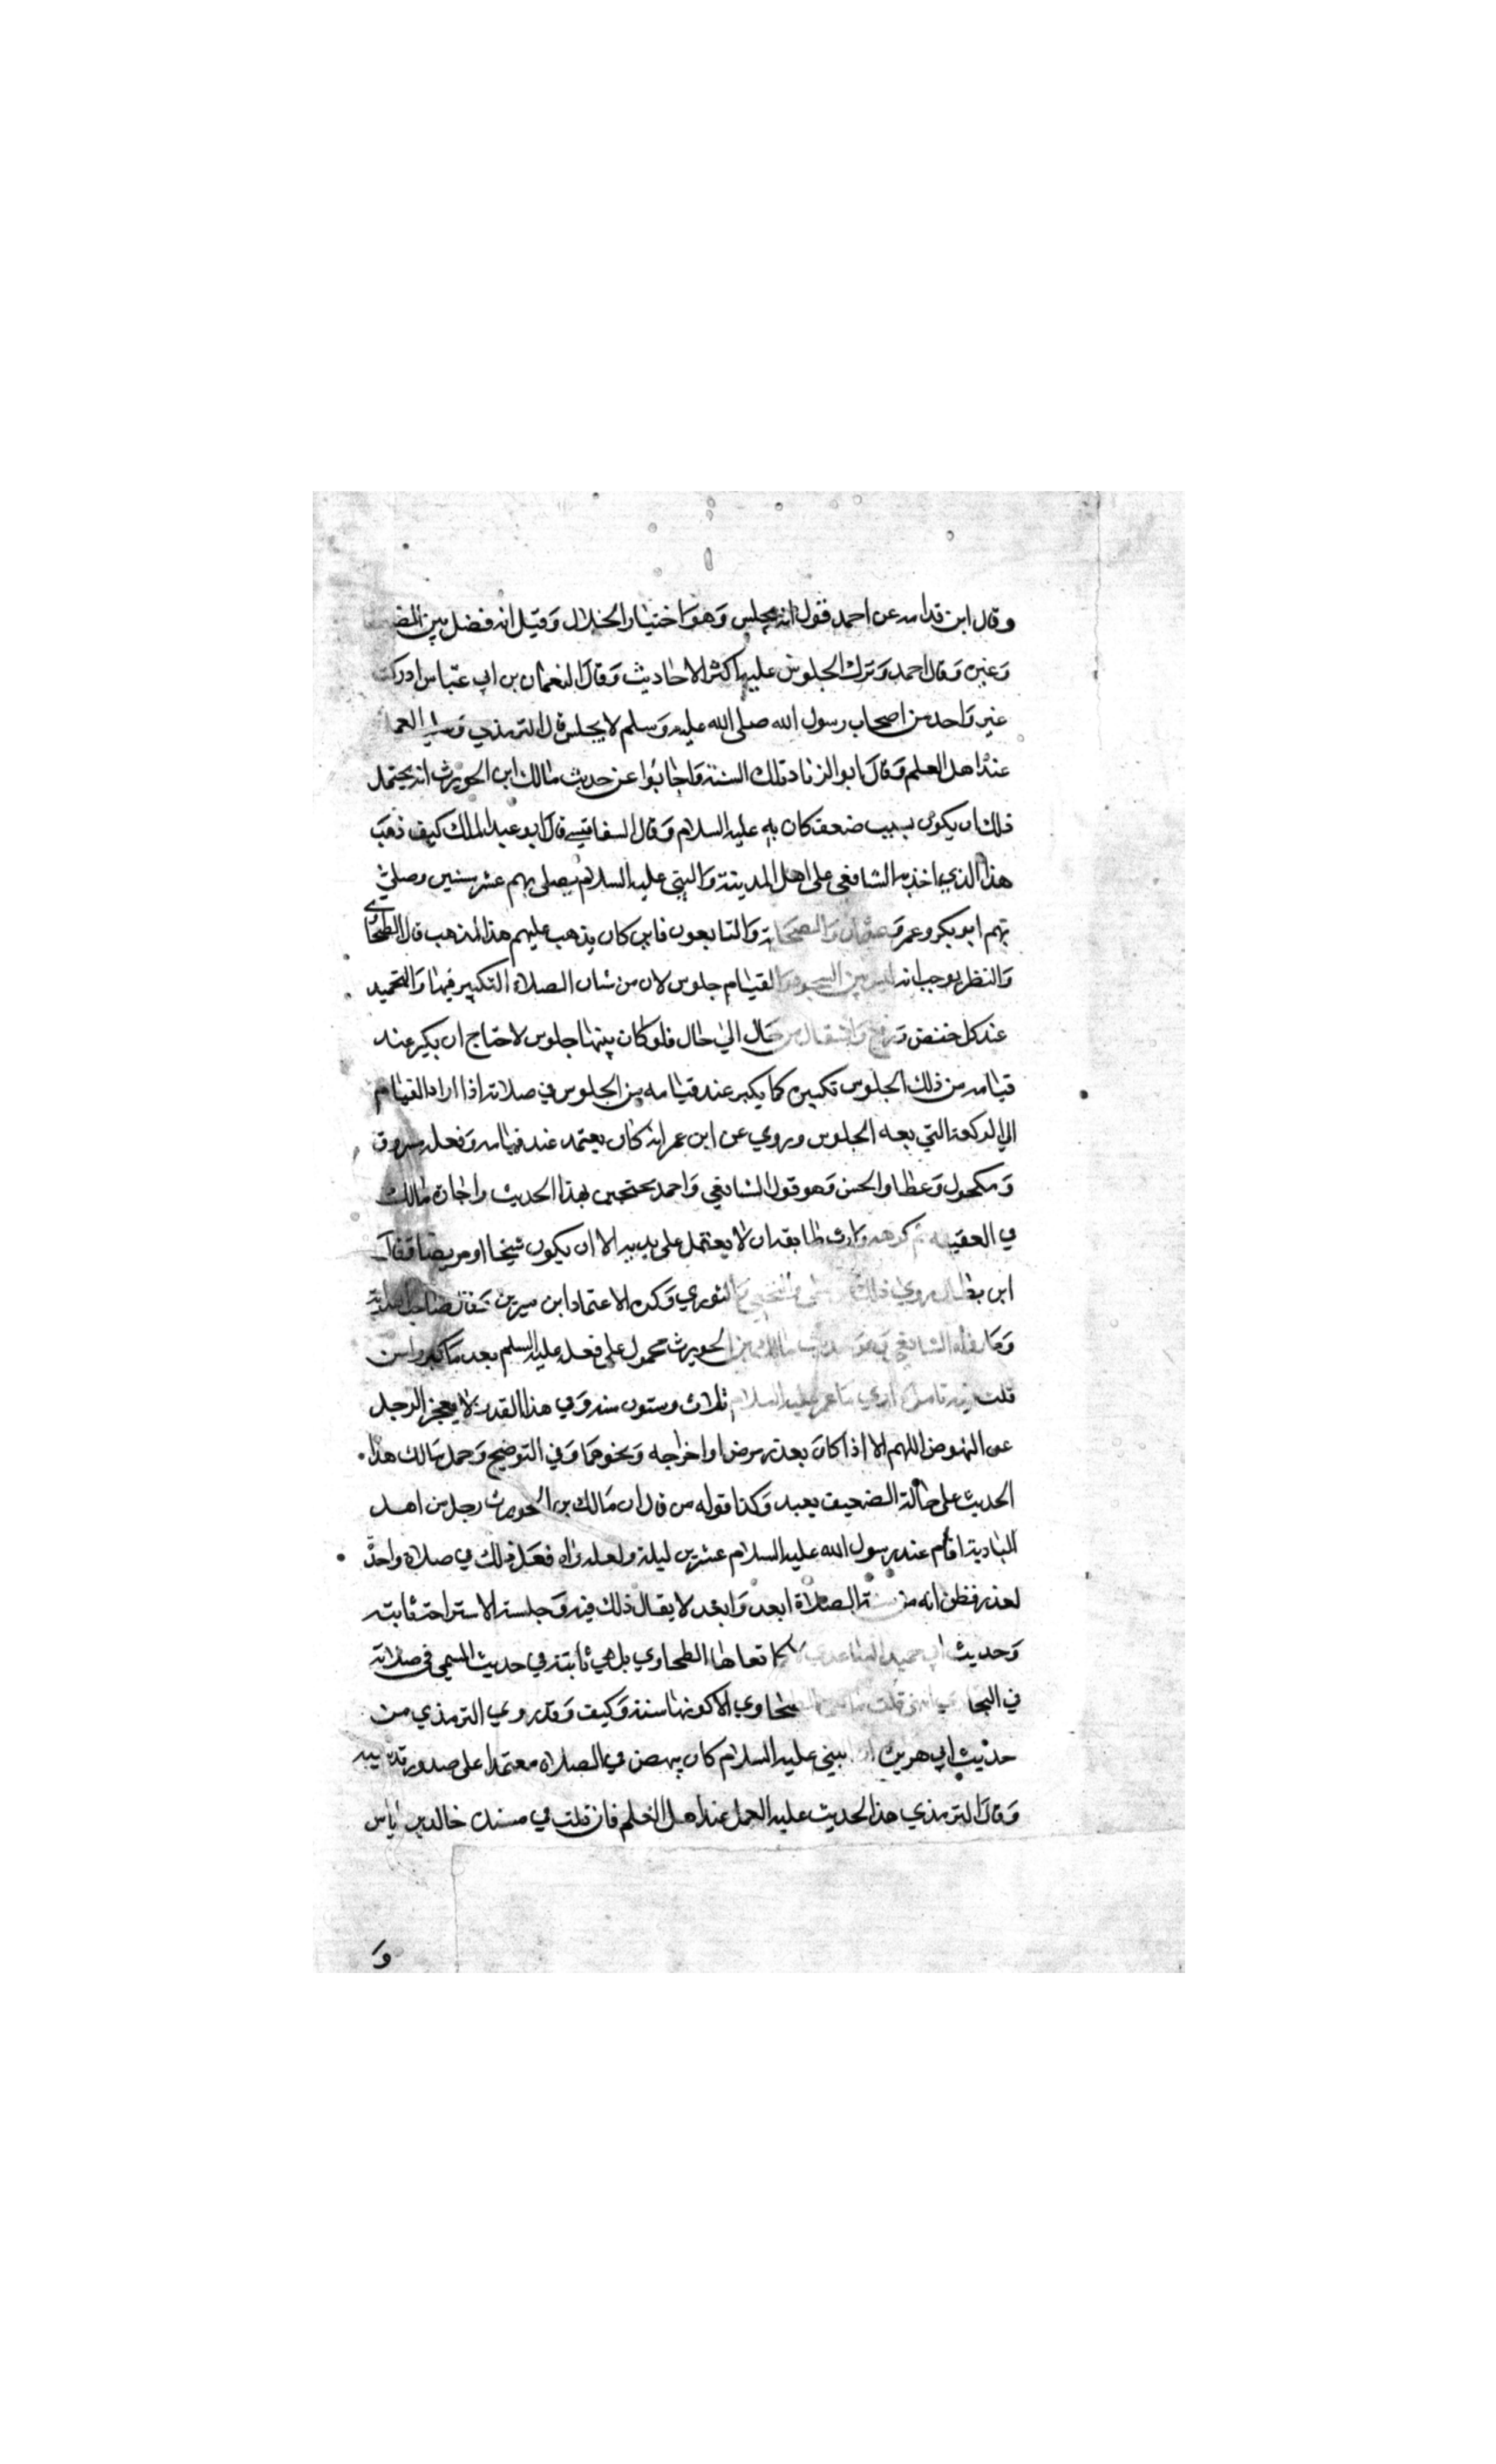 وقال ابن قدامه عن احمد قول انه يجلس وهو اختيار الخلال وقيل انه فصل بين الضعيف
وغيره وقال احمد وترك الجلوس عليه اكثر الاحاديث وقال النعمان بن ابي عياش ادركت
غير واحد من اصحاب رسول الله صلى الله عليه وسلم لا يجلس قال الترمذي وعليه العمل
عند اهل العلم وقال ابو الزناد تلك السنة واجابوا عن حديث مالك ابن الحويرث انه يحتمل
ذلك ان يكون بسبب ضعف كان به عليه السلام وقال السفاقسي قال ابو عبد الملك كيف ذهب
هذا الذي اخذ به الشافعي على اهل المدينة والنبي عليه السلام يصلي بهم عشر سنين وصلى
بهم ابو بكر وعمر وعثمان والصحابة والتابعون فاين كان يذهب عليهم هذا المذهب قال الطحاوي
والنظر يوجب انه ليس بين السجود والقيام جلوس لان من شان الصلاة التكبير فيها والتحميد
عند كل خفض ورفع وانتقال من حال الي حال فلو كان بينهما جلوس لاحتاج ان يكبر عند
قيامه من ذلك الجلوس تكبيرة كما يكبر عند قيامه من الجلوس في صلاته اذا اراد القيام
الي الركعة التي بعد الجلوس وروي عن ابن عمر انه كان يعتمد عند قيامه وفعله مسروق
ومكحول وعطا والحسن وهو قول الشافعي واحمد محتجين بهذا الحديث واجازه مالك
في العتبية ثم كرهه ورات طايفة ان لا يعتمد على يديه الا ان يكون شيخا او مريضا قال
ابن بطال روي ذلك عن علي والنخعي والثوري وكره الاعتماد ابن سيرين وقال صاحب الهداية
وما رواه الشافعي وهو حديث مالك بن الحويرث محمول على فعله عليه السلم بعد ما كبر واسن
قلت فيه تامل لان انهي ما عمر عليه السلام ثلاث وستون سنه وفي هذا القدر لا يعجز الرجل
عن النهوض اللهم الا اذا كان بعذر مرض او اخراجه ونحوهما وفي التوضيح وحمل مالك هذا
الحديث على حالة الضعيف بعيد وكذا قوله من قال ان مالك بن الحويرث رجل من اهل
البادية اقام عند رسول الله عليه السلام عشرين ليلة ولعله راه فعل ذلك في صلاة واحدة
لعذر فظن انه من سنة الصلاة ابعد وابعد لا يقال ذلك فيه وجلسة الاستراحة ثابتة
وحديث ابي حميد الساعدي لا كما نفاها الطحاوي بل هي ثابتة في حديث المسي في صلاته
في البخاري انتهى قلت ما نفي الطحاوي الا كونها سنة وكيف وقد روي الترمذي من
حديث ابي هريرة ان النبي عليه السلام كان ينهض في الصلاة معتمدا على صدور قدميه
وقال الترمذي هذا الحديث عليه العمل عند اهل العلم فان قلت في سنده خالد بن اياس
و